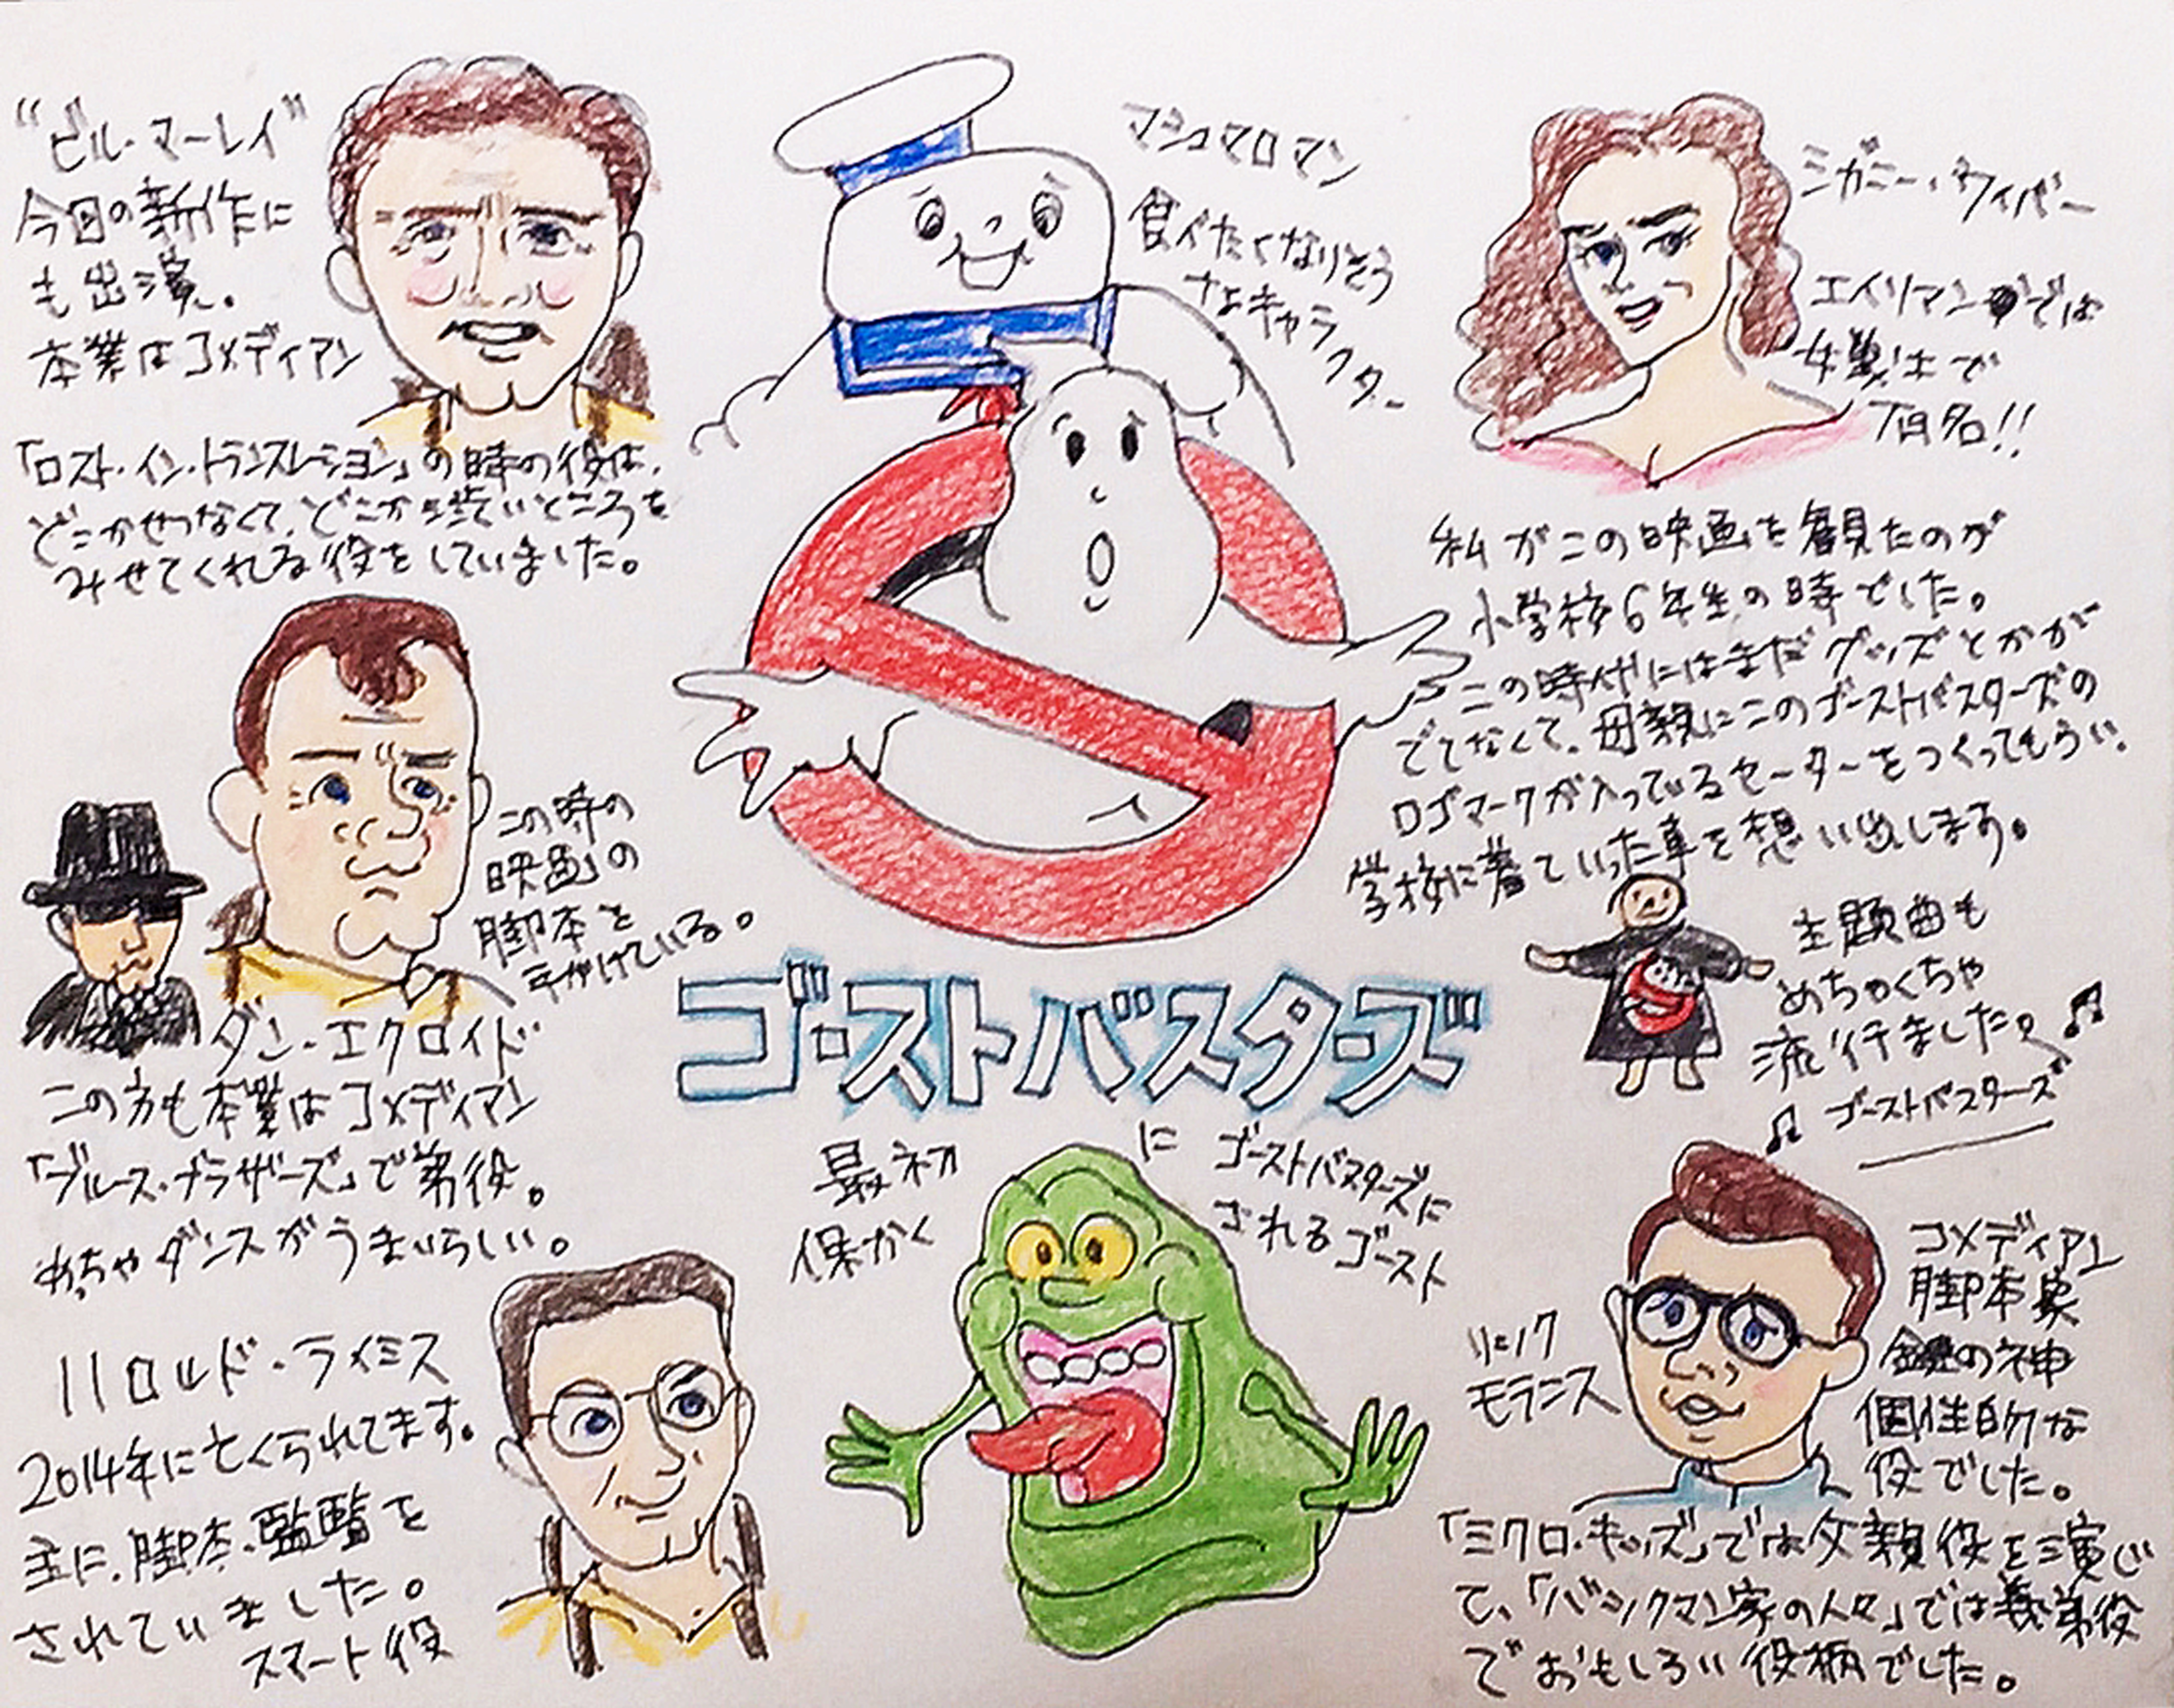 "ビル・マーレイ"
今回の新作に
も出演。
本業はコメディアン
「ロスト・イン・トランスレーション」の時の役は、
どこかせつなくて、どこか渋いところを
みせてくれる役をしていました。
マシュマロマン
食べたくなりそう
なキャラクター
シガニー・ウィバー
エイリアンでは
女戦士で
有名!!
私がこの映画を観たのが
小学校6年生の時でした。
この時代にはまだグッズとかが
でてなくて、母親にこのゴーストバスターズの
ロゴマークが入っているセーターをつくってもらい、
学校に着ていった事を想い出します。
主題曲も
めちゃくちゃ
流行ました。♫
♫ ゴーストバスターズ
この時の
映画の
脚本を
手がけている。
ダン・エクロイド
この方も本業はコメディアン
「ブルース・ブラザーズ」で弟役。
めっちゃダンスがうまいらしい。
ゴーストバスターズ
最初に ゴーストバスターズに
保かくされるゴースト
ハロルド・ライミス
2014年に亡くられてます。
主に、脚本、監督を
されていました。
スマート役
リック
モラニス
コメディアン
脚本家
鍵の神
個性的な
役でした。
「ミクロ・キッズ」では父親役を演じ
て、「バックマン家の人々」では義弟役
でおもしろい役柄でした。